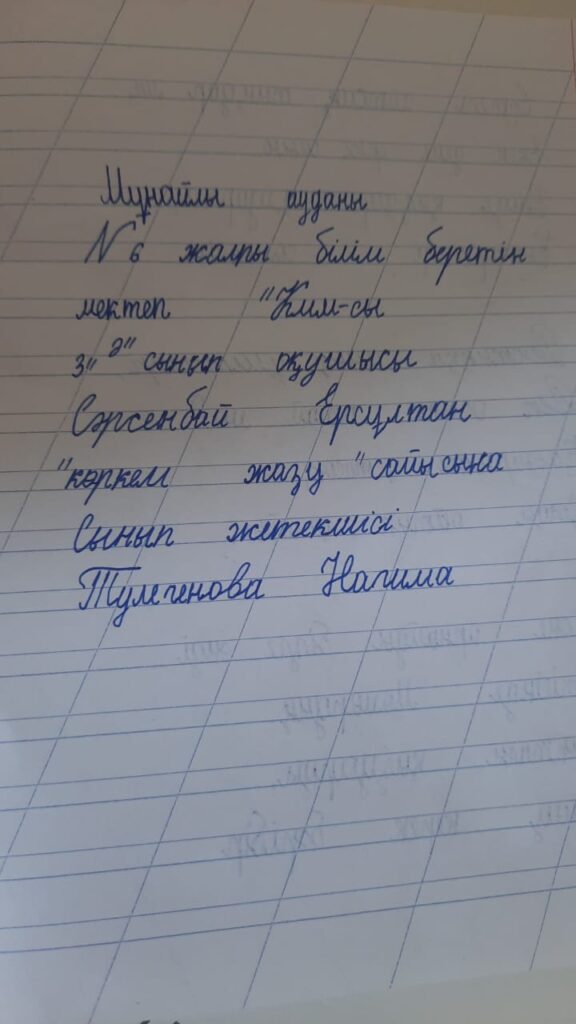 Мұнайлы ауданы
N 6 жалпы білім беретін
мектеп "Кмм-сы
3 "Ә" сынып оқушысы
Сәрсенбай Ерсұлтан
"көркем жазу" сайысына
Сынып жетекшісі
Тулегенова Нагима